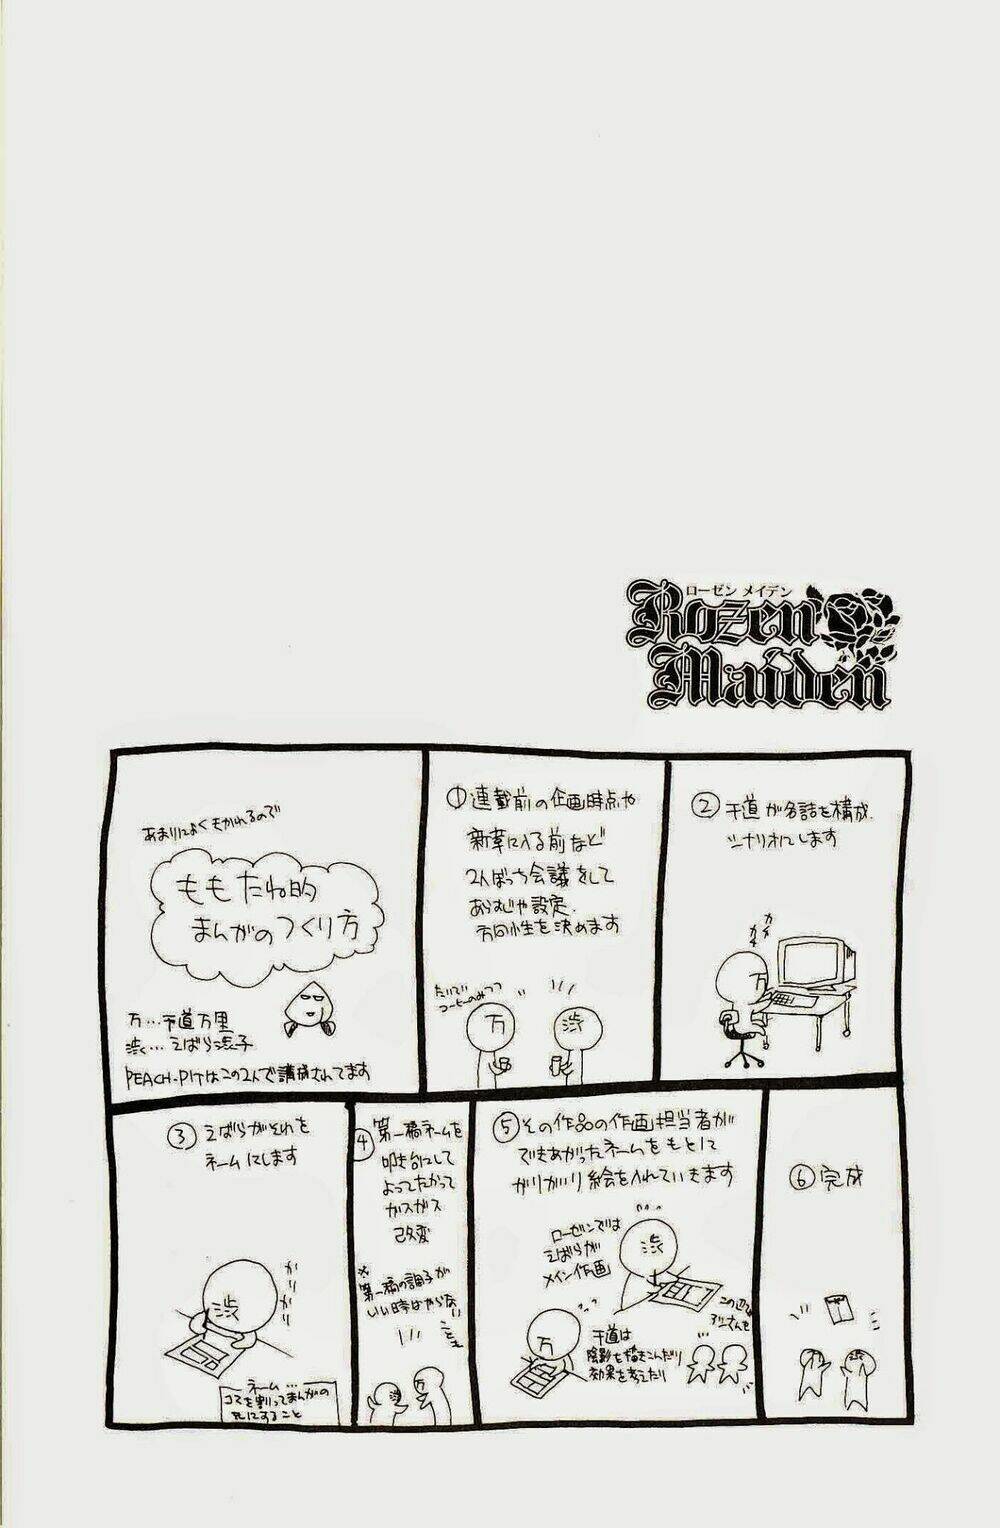 ローゼン メイデン
Rozen
Maiden
あまりによくきかれるので
ももたね的
まんがのつくり方
万…千道万里
渋…えばら渋子
PEACH-PITはこの2人で講成されてます
①連載前の企画時点や
新章に入る前など
2人ぼっち会議をして
あらすじや設定、
方向性を決めます
たいてい
コーヒーのみつつ
万
渋
②千道が各話を構成、
シナリオにします
カチ
カチ
万
③えばらがそれを
ネームにします
かりかり
渋
ネーム…
コマを割ってまんがの
元にすること
④第一稿ネームを
叩き台にして
よってたかって
ガスガス
改変
※
第一稿の調子が
いい時はやらない
渋
万
⑤その作品の作画担当者が
できあがったネームをもとに
がりがり絵を入れていきます
ローゼンでは
えばらが
メイン作画
渋
万
千道は
陰影を描きこんだり
効果を考えたり
⑥完成